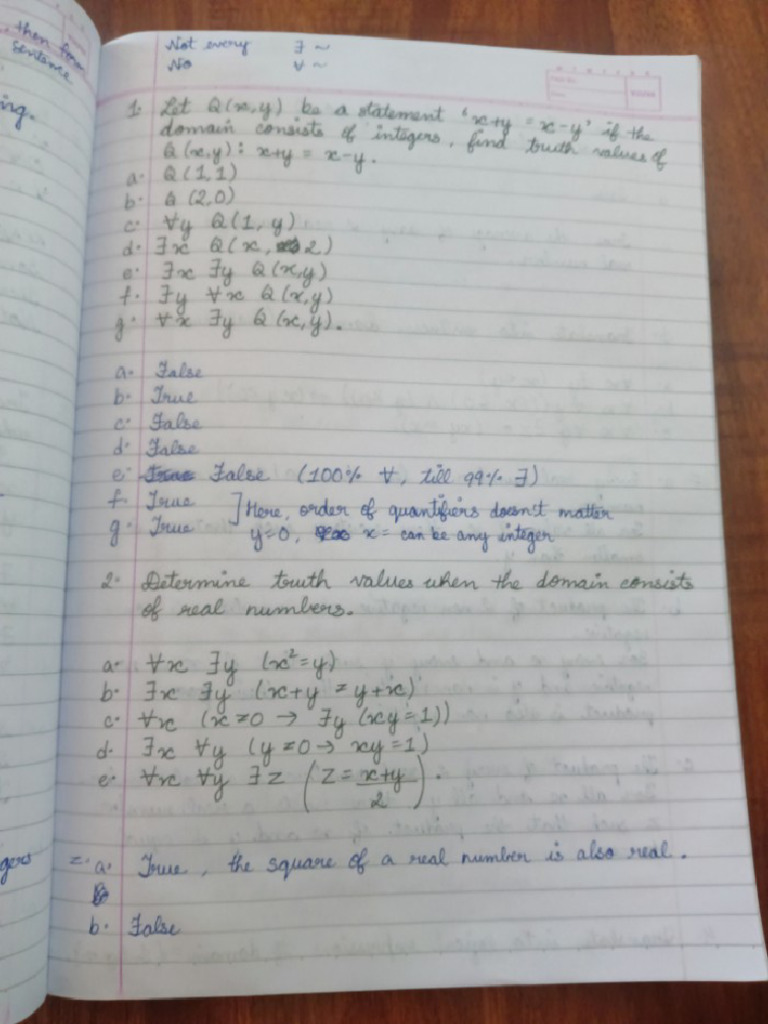 then form
sentence
ing.
Not every ∃ ~
No ∀ ~
1. Let Q(x,y) be a statement 'x+y = x-y' if the
domain consists of integers, find truth values of
Q(x,y): x+y = x-y.
a. Q(1,1)
b. Q(2,0)
c. ∀y Q(1, y)
d. ∃x Q(x, 2)
e. ∃x ∃y Q(x,y)
f. ∃y ∀x Q(x,y)
g. ∀x ∃y Q(x,y).
a. False
b. True
c. False
d. False
e. True False (100% ∀, till 99% ∃)
f. True ] Here, order of quantifiers doesn't matter
g. True y=0, x = can be any integer
2. Determine truth values when the domain consists
of real numbers.
a. ∀x ∃y (x²=y)
b. ∃x ∃y (x+y ≠ y+x)
c. ∀x (x≠0 → ∃y (xy=1))
d. ∃x ∀y (y≠0 → xy=1)
e. ∀x ∀y ∃z (z = x+y/2).
gers
2. a. True, the square of a real number is also real.
b. False